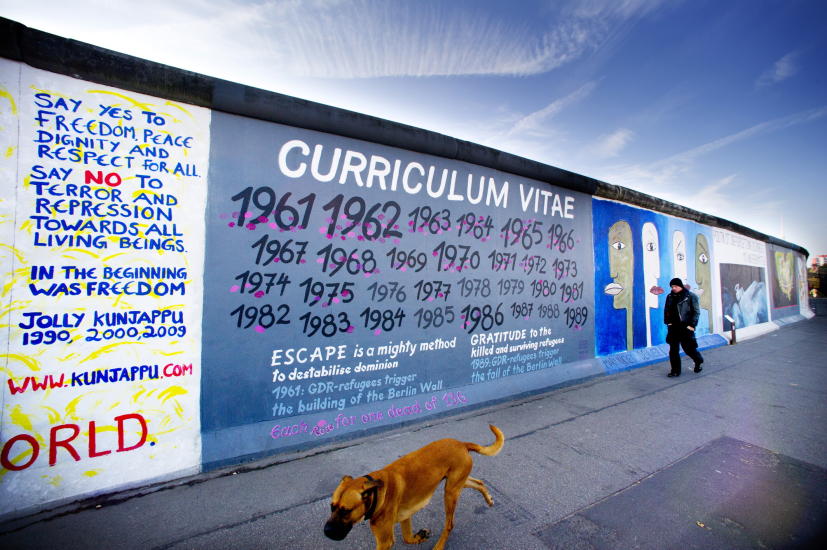 SAY YES TO
FREEDOM, PEACE
DIGNITY AND
RESPECT FOR ALL.
SAY NO TO
TERROR AND
REPRESSION
TOWARDS ALL
LIVING BEINGS.
IN THE BEGINNING
WAS FREEDOM
JOLLY KUNJAPPU
1990, 2000, 2009
WWW.KUNJAPPU.COM
ORLD.
CURRICULUM VITAE
1961 1962 1963 1964 1965 1966
1967 1968 1969 1970 1971 1972 1973
1974 1975 1976 1977 1978 1979 1980 1981
1982 1983 1984 1985 1986 1987 1988 1989
ESCAPE is a mighty method
to destabilise dominion
1961: GDR-refugees trigger
the building of the Berlin Wall
GRATITUDE to the
killed and surviving refugees
1989: GDR-refugees trigger
the fall of the Berlin Wall
Each for one dead of